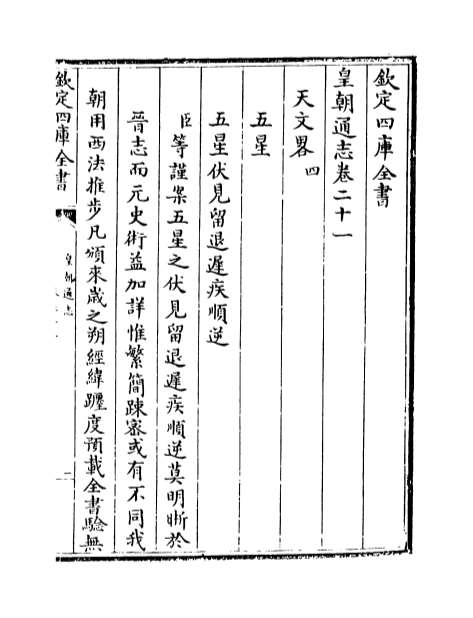 欽定四庫全書
皇朝通志卷二十一
天文畧四
五星
五星伏見留退遲疾順逆
臣等謹案五星之伏見留退遲疾順逆莫明晰於
晉志而元史術益加詳惟繁簡疎密或有不同我
朝用西法推步凡頒來歲之朔經緯躔度預載全書驗無
欽定四庫全書
皇朝通志